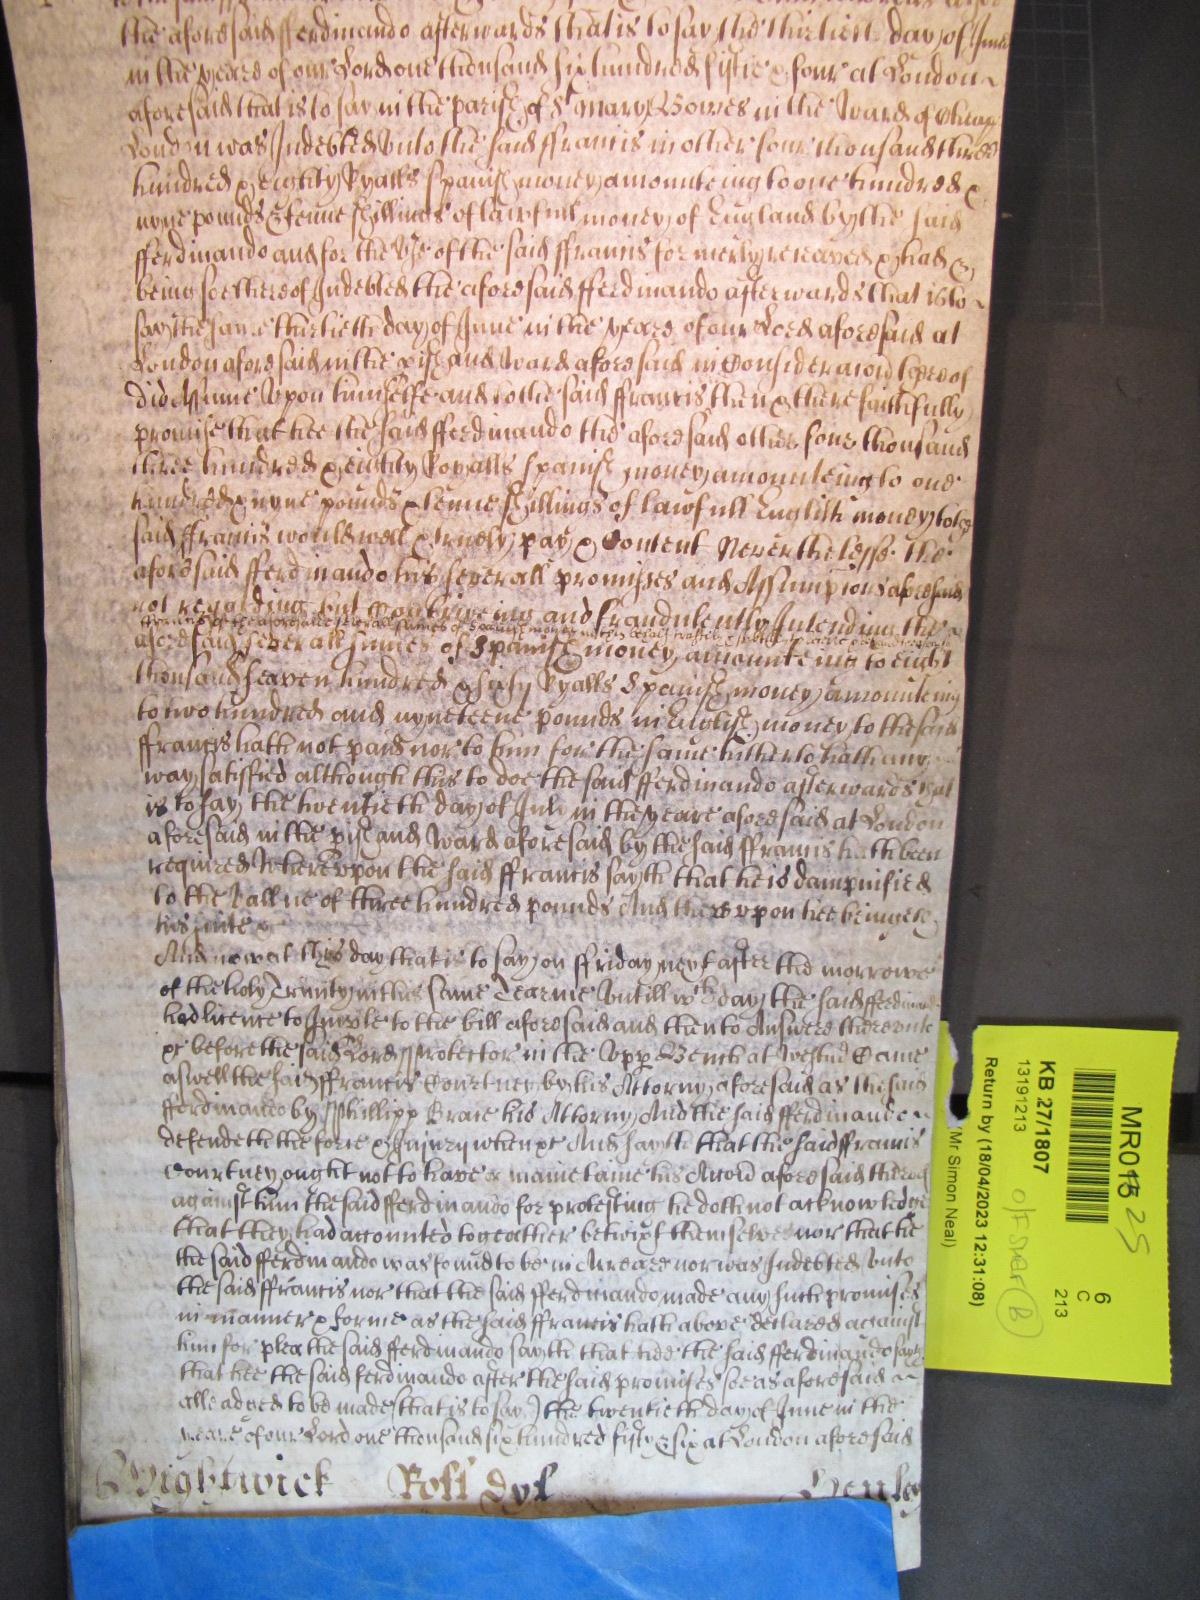 the aforesaid fferdinando afterwards that is to say the thirtieth day of June
in the yeare of our Lord one thousand six hundred fiftie & four at London
aforesaid that is to say in the parish of St Mary Bowes in the Ward of Cheape
London was Indebted unto the said ffrancis in other four thousand three
hundred & eighty Ryalls Spanish money amounteing to one hundred &
nyne pounds & tenne shillings of lawfull money of England by the said
fferdinando and for the use of the said ffrancis formerly receaved & had &
being soe thereof Indebted the aforesaid fferdinando afterwards that is to
say the same thirtieth day of June in the yeare of our Lord aforesaid at
London aforesaid in the pish and Ward aforesaid in Consideracion thereof
did Assume upon himselfe and to the said ffrancis then & there faithfully
promise that hee the said fferdinando the aforesaid other four thousand
three hundred & eighty Royalls Spanish money amounteing to one
hundred & nyne pounds & tenne shillings of lawfull English money to the
said ffrancis would well & truely pay & Content Neverthelesse the
aforesaid fferdinando his severall promises and Assumpcions aforesaid
not regarding but Contriveing and fraudulently Intending the
ffrancis of the aforesaid severall summes of Spanish money in this behalf
aforesaid severall summes of Spanish money amounteing to eight
thousand seaven hundred & sixty Ryalls Spanish money amounteing
to two hundred and nyneteene pounds in English money to the said
ffrancis hath not paid nor to him for the same hitherto hath any
way satisfied although this to doe the said fferdinando afterwards that
is to say the twentieth day of July in the yeare aforesaid at London
aforesaid in the pish and Ward aforesaid by the said ffrancis hath been
required Whereupon the said ffrancis sayth that he is dampnified
to the vallue of three hundred pounds And thereupon hee bringeth
his suite &c
And now at this day that is to say on ffriday next after the morrowe
of the holy Trinity in this same Tearme untill wch day the said fferdinando
had licence to Imparle to the bill aforesaid and then to Answere thereunto
&c before the said Lord Protector in the Upp Bench at Westmr Came
aswell the said ffrancis Courtney by his Attorny aforesaid as the said
fferdinando by Phillipp Brace his Attorny And the said fferdinando
defendeth the force & Injury when &c And sayth that the said ffrancis
Courtney ought not to have or mainetaine his Accion aforesaid thereof
against him the said fferdinando for protesting he doth not acknowledge
that they had accounted togeather betwixt themselves nor that he
the said fferdinando was found to be in Arreare nor was Indebted unto
the said ffrancis nor that the said fferdinando made any such promises
in manner & forme as the said ffrancis hath above declared against
him for plea the said fferdinando sayth that hee the said fferdinando
that hee the said fferdinando after the said promises soe as aforesaid
alleadged to be made (that is to say) the twentieth day of June in the
yeare of our Lord one thousand six hundred fifty & six at London aforesaid
Wightwick Roll
Henley
MR01 25
6
C
213
KB 27/1807
13191213
Return by (18/04/2023 12:31:08)
(Mr Simon Neal)